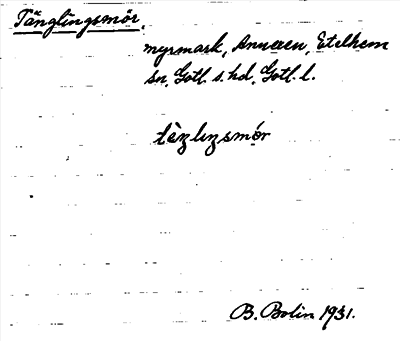 Tänglingsmör,
myrmark, Anneren, Etelhem
sn, Gotl. s. hd, Gotl. l.
B. Bolin 1931.